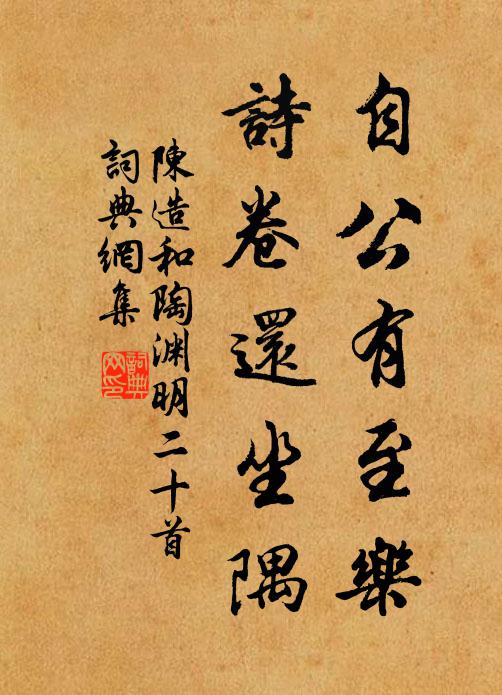 自公有至樂
詩卷還坐隅
陳造和陶淵明二十首
詞典網集
詞典網印